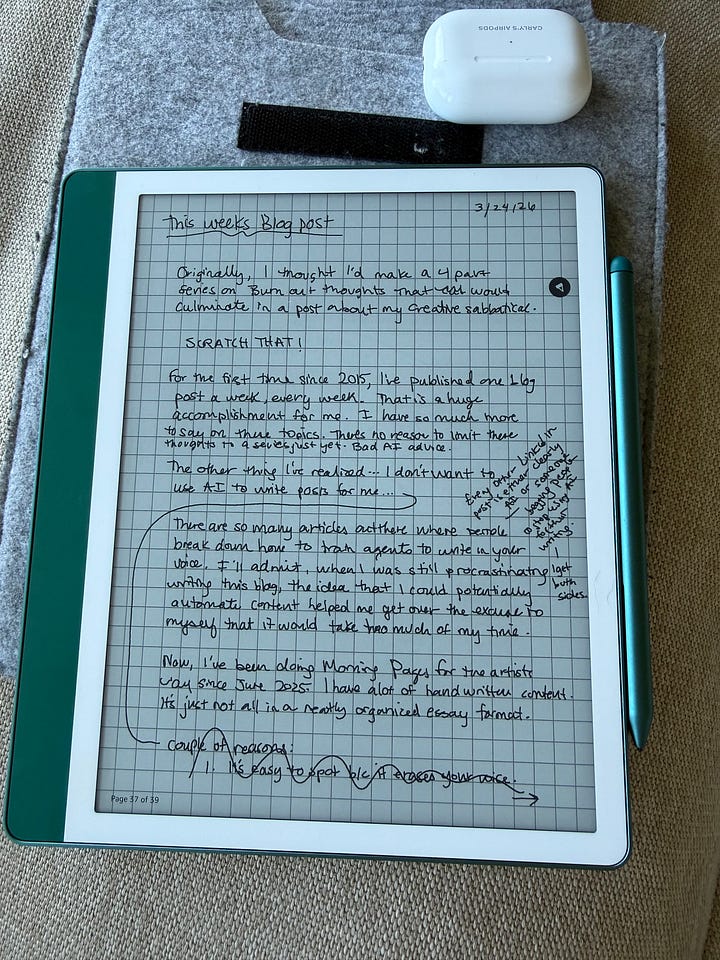 CARLY'S AIRPODS
3/24/26
This weeks Blog post
Originally, I thought I'd make a 4 part
series on Burn out thoughts that would
culminate in a post about my creative sabbatical.
SCRATCH THAT!
For the first time since 2015, I've published one blog
post a week, every week. That is a huge
accomplishment for me. I have so much more
to say on these topics. There's no reason to limit these
thoughts to a series, just yet. Bad AI advice.
The other thing I've realized... I don't want to
use AI to write posts for me...
Every other LinkedIn
post is either clearly
AI or someone
begging people
to stop using AI
for their
writing.
I get
both
sides.
There are so many articles out there where people
break down how to train agents to write in your
voice. I'll admit, when I was still procrastinating
writing this blog, the idea that I could potentially
automate content helped me get over the excuse to
myself that it would take too much of my time.
Now, I've been doing Morning Pages for the artists
way since June 2025. I have a lot of hand written content.
It's just not all in a neatly organized essay format.
couple of reasons:
1. It's easy to spot b/c it erases your voice.
Page 37 of 39